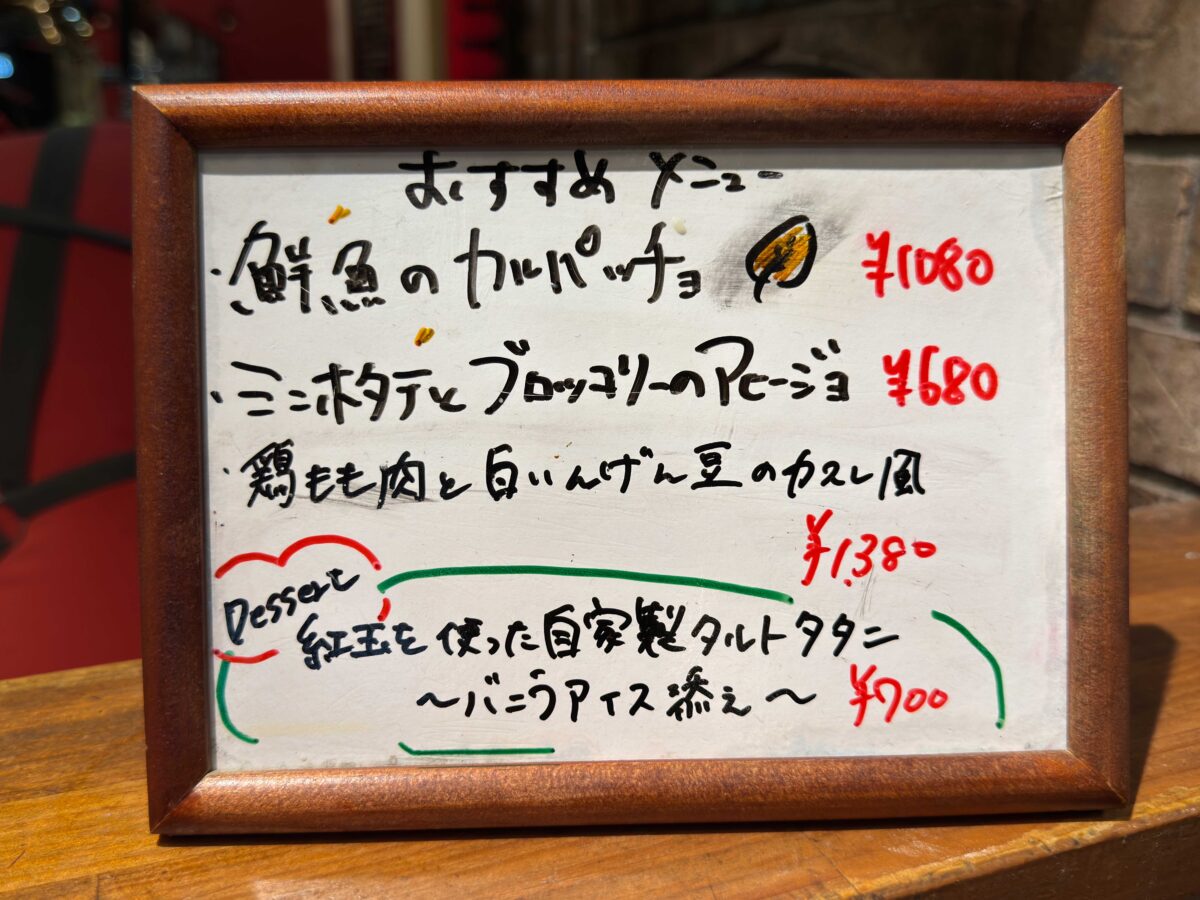 おすすめ メニュー
・鮮魚のカルパッチョ ¥1080
・ミニホタテとブロッコリーのアヒージョ ¥680
・鶏もも肉と白いんげん豆のカスレ風
¥1,380
Dessert
紅玉を使った自家製タルトタタン
〜バニラアイス添え〜 ¥700